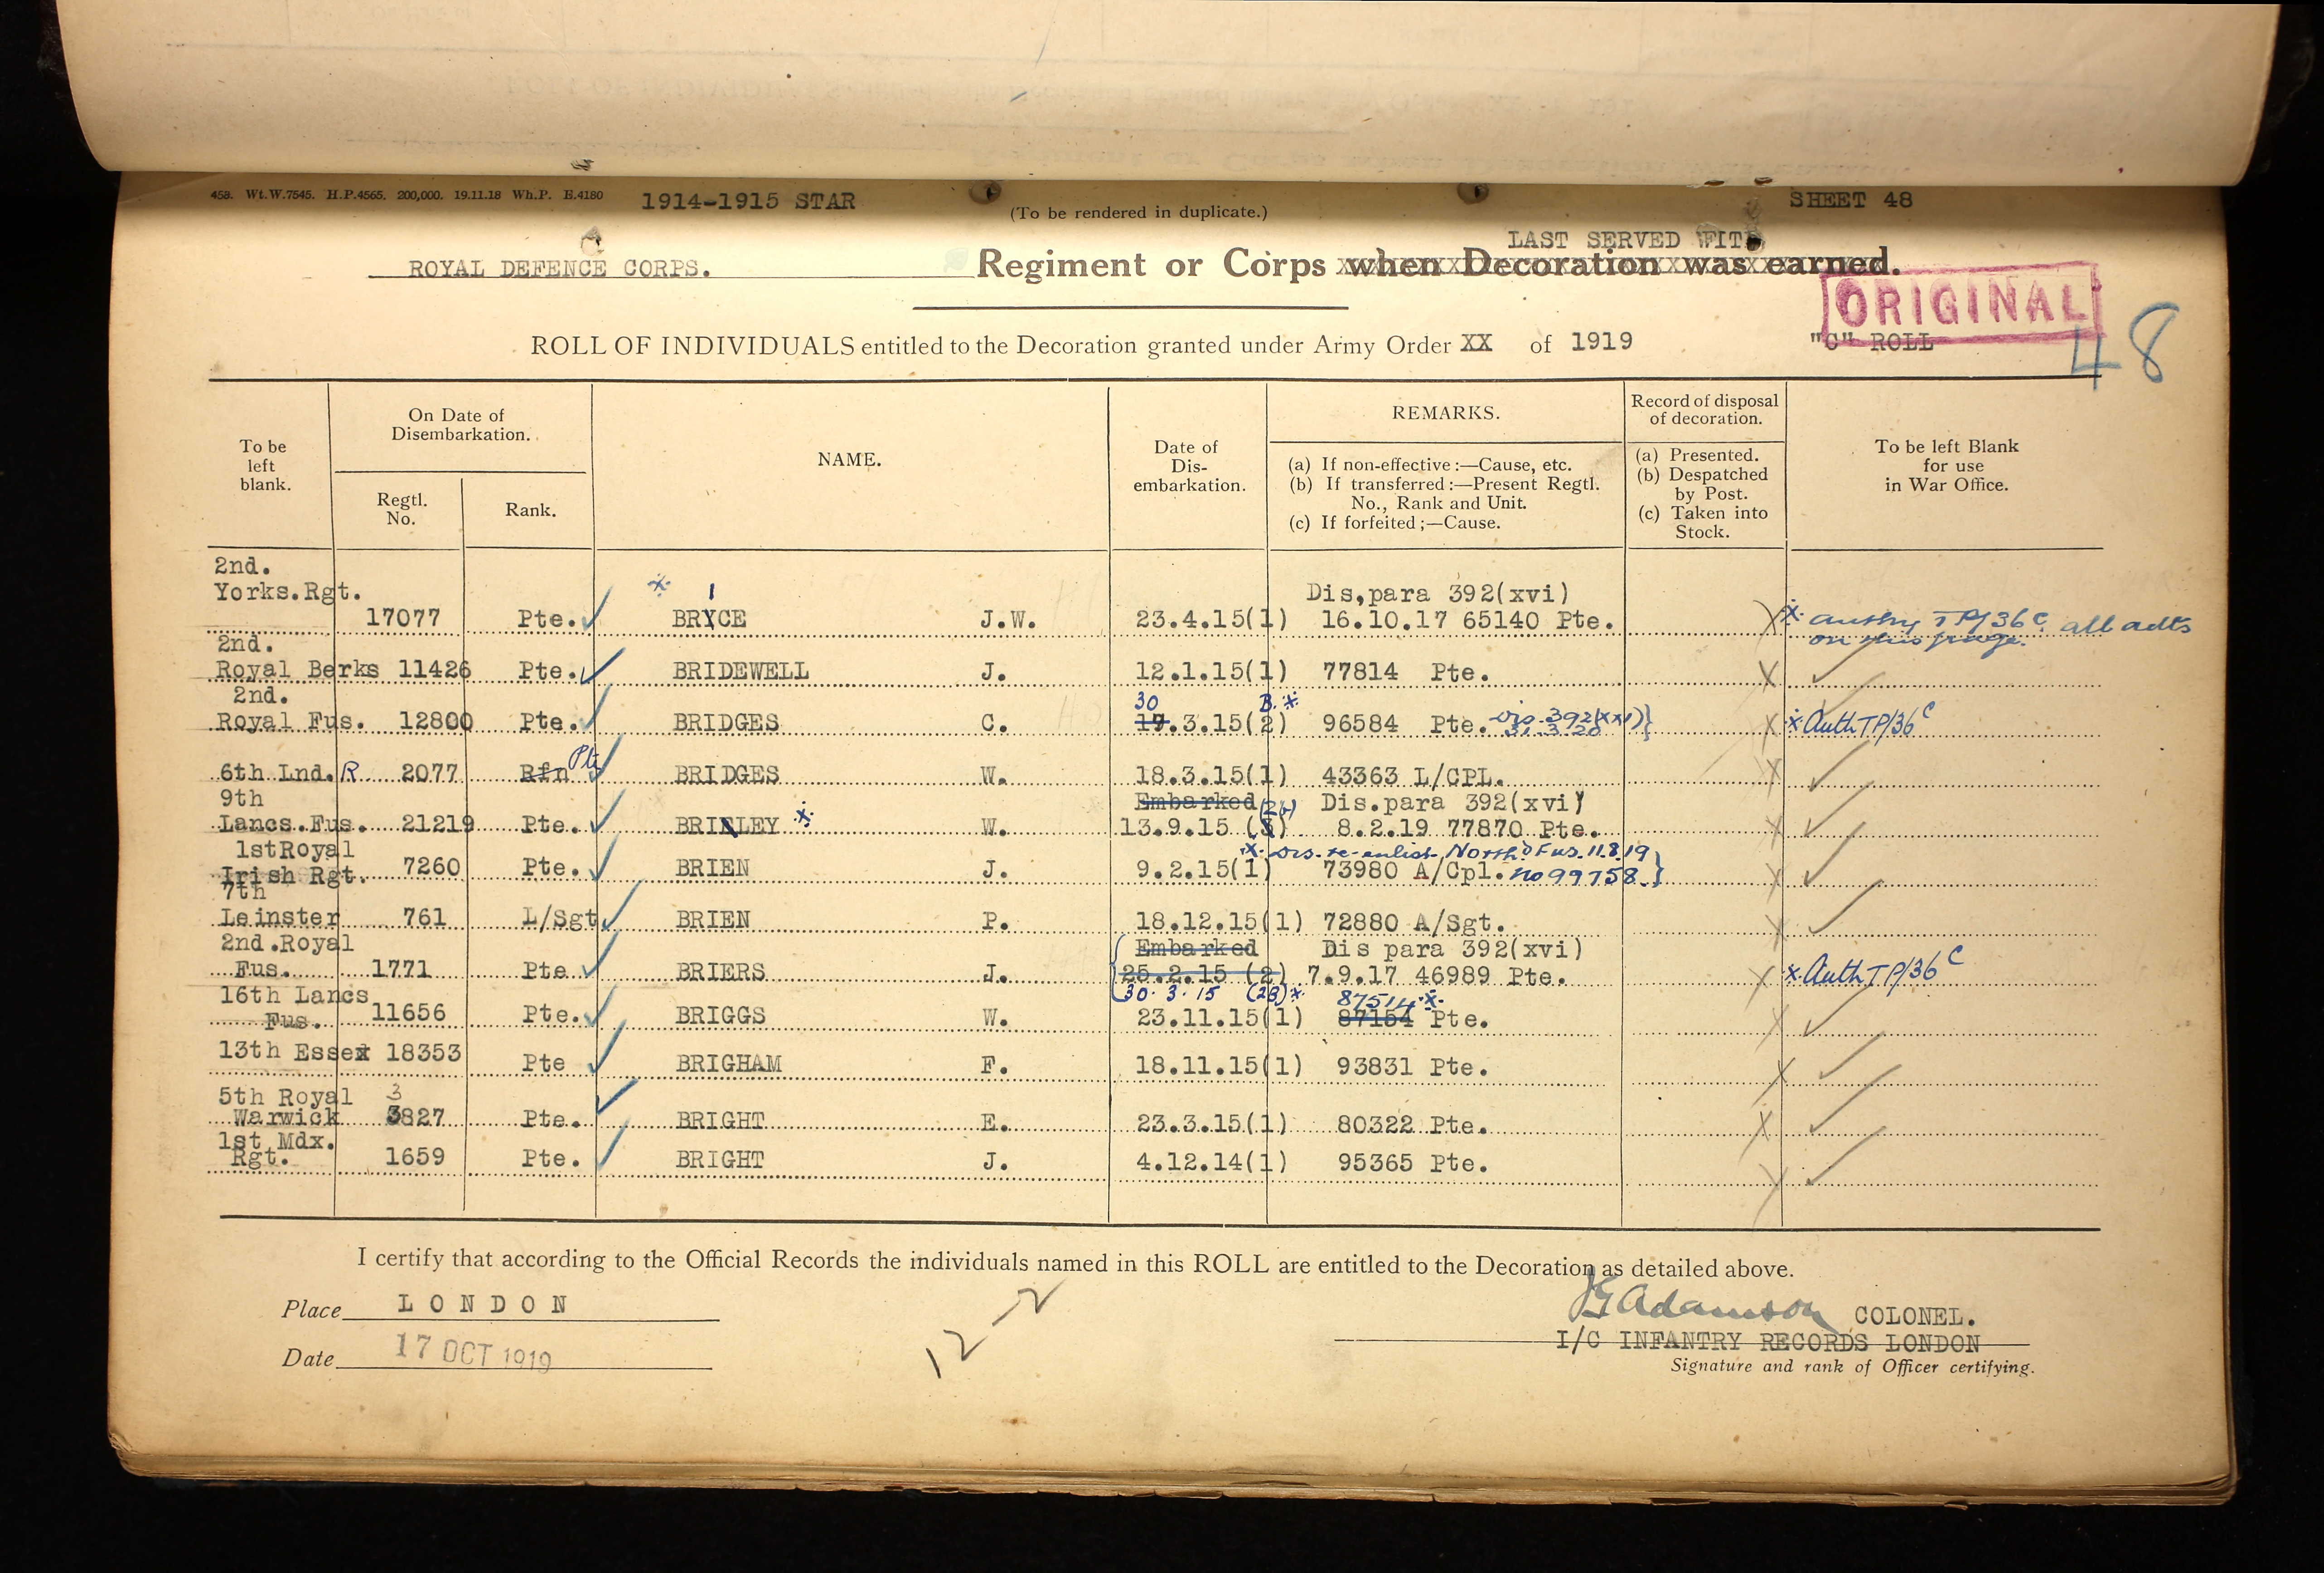 458. Wt.W.7545. H.P.4565. 200,000. 19.11.18 Wh.P. E.4180 1914-1915 STAR (To be rendered in duplicate.) SHEET 48
LAST SERVED WITH
ROYAL DEFENCE CORPS. Regiment or Corps when Decoration was earned.
ORIGINAL
ROLL OF INDIVIDUALS entitled to the Decoration granted under Army Order XX of 1919 "C" ROLL 48
To be left blank.
On Date of Disembarkation.
Regtl. No.
Rank.
NAME.
Date of Dis-embarkation.
REMARKS.
(a) If non-effective:—Cause, etc.
(b) If transferred:—Present Regtl. No., Rank and Unit.
(c) If forfeited;—Cause.
Record of disposal of decoration.
(a) Presented.
(b) Despatched by Post.
(c) Taken into Stock.
To be left Blank for use in War Office.
2nd.
Yorks.Rgt. Dis,para 392(xvi)
I
17077 Pte. BRYCE J.W. 23.4.15(1) 16.10.17 65140 Pte. authy TP/36C all adts
on this page.
2nd.
Royal Berks 11426 Pte. BRIDEWELL J. 12.1.15(1) 77814 Pte.
2nd. 30 B.
Royal Fus. 12800 Pte. BRIDGES C. 19.3.15(2) 96584 Pte. Dis. 392(xxi) 31.3.20 Auth TP/36C
Pte
6th Lnd. R 2077 Rfn BRIDGES W. 18.3.15(1) 43363 L/CPL.
9th Embarked (2B) Dis.para 392(xvi)
Lancs.Fus. 21219 Pte. BRIELEY W. 13.9.15 (3) 8.2.19 77870 Pte.
Dis. re-enlist. North'd Fus. 11.8.19
1stRoyal
Irish Rgt. 7260 Pte. BRIEN J. 9.2.15(1) 73980 A/Cpl. No 99758
7th
Leinster 761 L/Sgt BRIEN P. 18.12.15(1) 72880 A/Sgt.
2nd.Royal Embarked Dis para 392(xvi)
Fus. 1771 Pte BRIERS J. 25.2.15 (2) 7.9.17 46989 Pte. Auth TP/36C
30.3.15 (2B) 87514
16th Lancs
Fus. 11656 Pte. BRIGGS W. 23.11.15(1) 87154 Pte.
13th Essex 18353 Pte BRIGHAM F. 18.11.15(1) 93831 Pte.
5th Royal 3
Warwick 3827 Pte. BRIGHT E. 23.3.15(1) 80322 Pte.
1st Mdx.
Rgt. 1659 Pte. BRIGHT J. 4.12.14(1) 95365 Pte.
I certify that according to the Official Records the individuals named in this ROLL are entitled to the Decoration as detailed above.
Place LONDON
Adamson COLONEL.
I/C INFANTRY RECORDS LONDON
Date 17 OCT 1919
12
Signature and rank of Officer certifying.